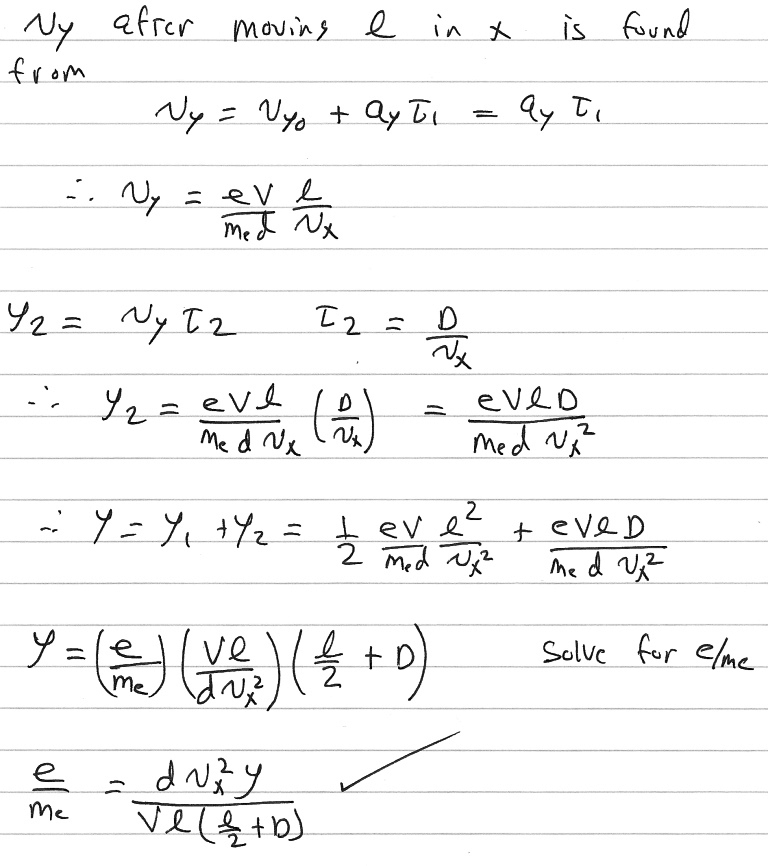 Vy after moving l in x is found
from
Vy = Vy₀ + ay τ₁ = ay τ₁
∴ Vy = eV/(me d) l/Vx
y₂ = Vy τ₂    τ₂ = D/Vx
∴ y₂ = eVl/(me d Vx) (D/Vx) = eVlD/(me d Vx²)
∴ y = y₁ + y₂ = 1/2 eV/(me d) l²/Vx² + eVlD/(me d Vx²)
y = (e/me) (Vl/(d Vx²)) (l/2 + D)    Solve for e/me
e/me = d Vx² y/(Vl(l/2 + D)) ✓